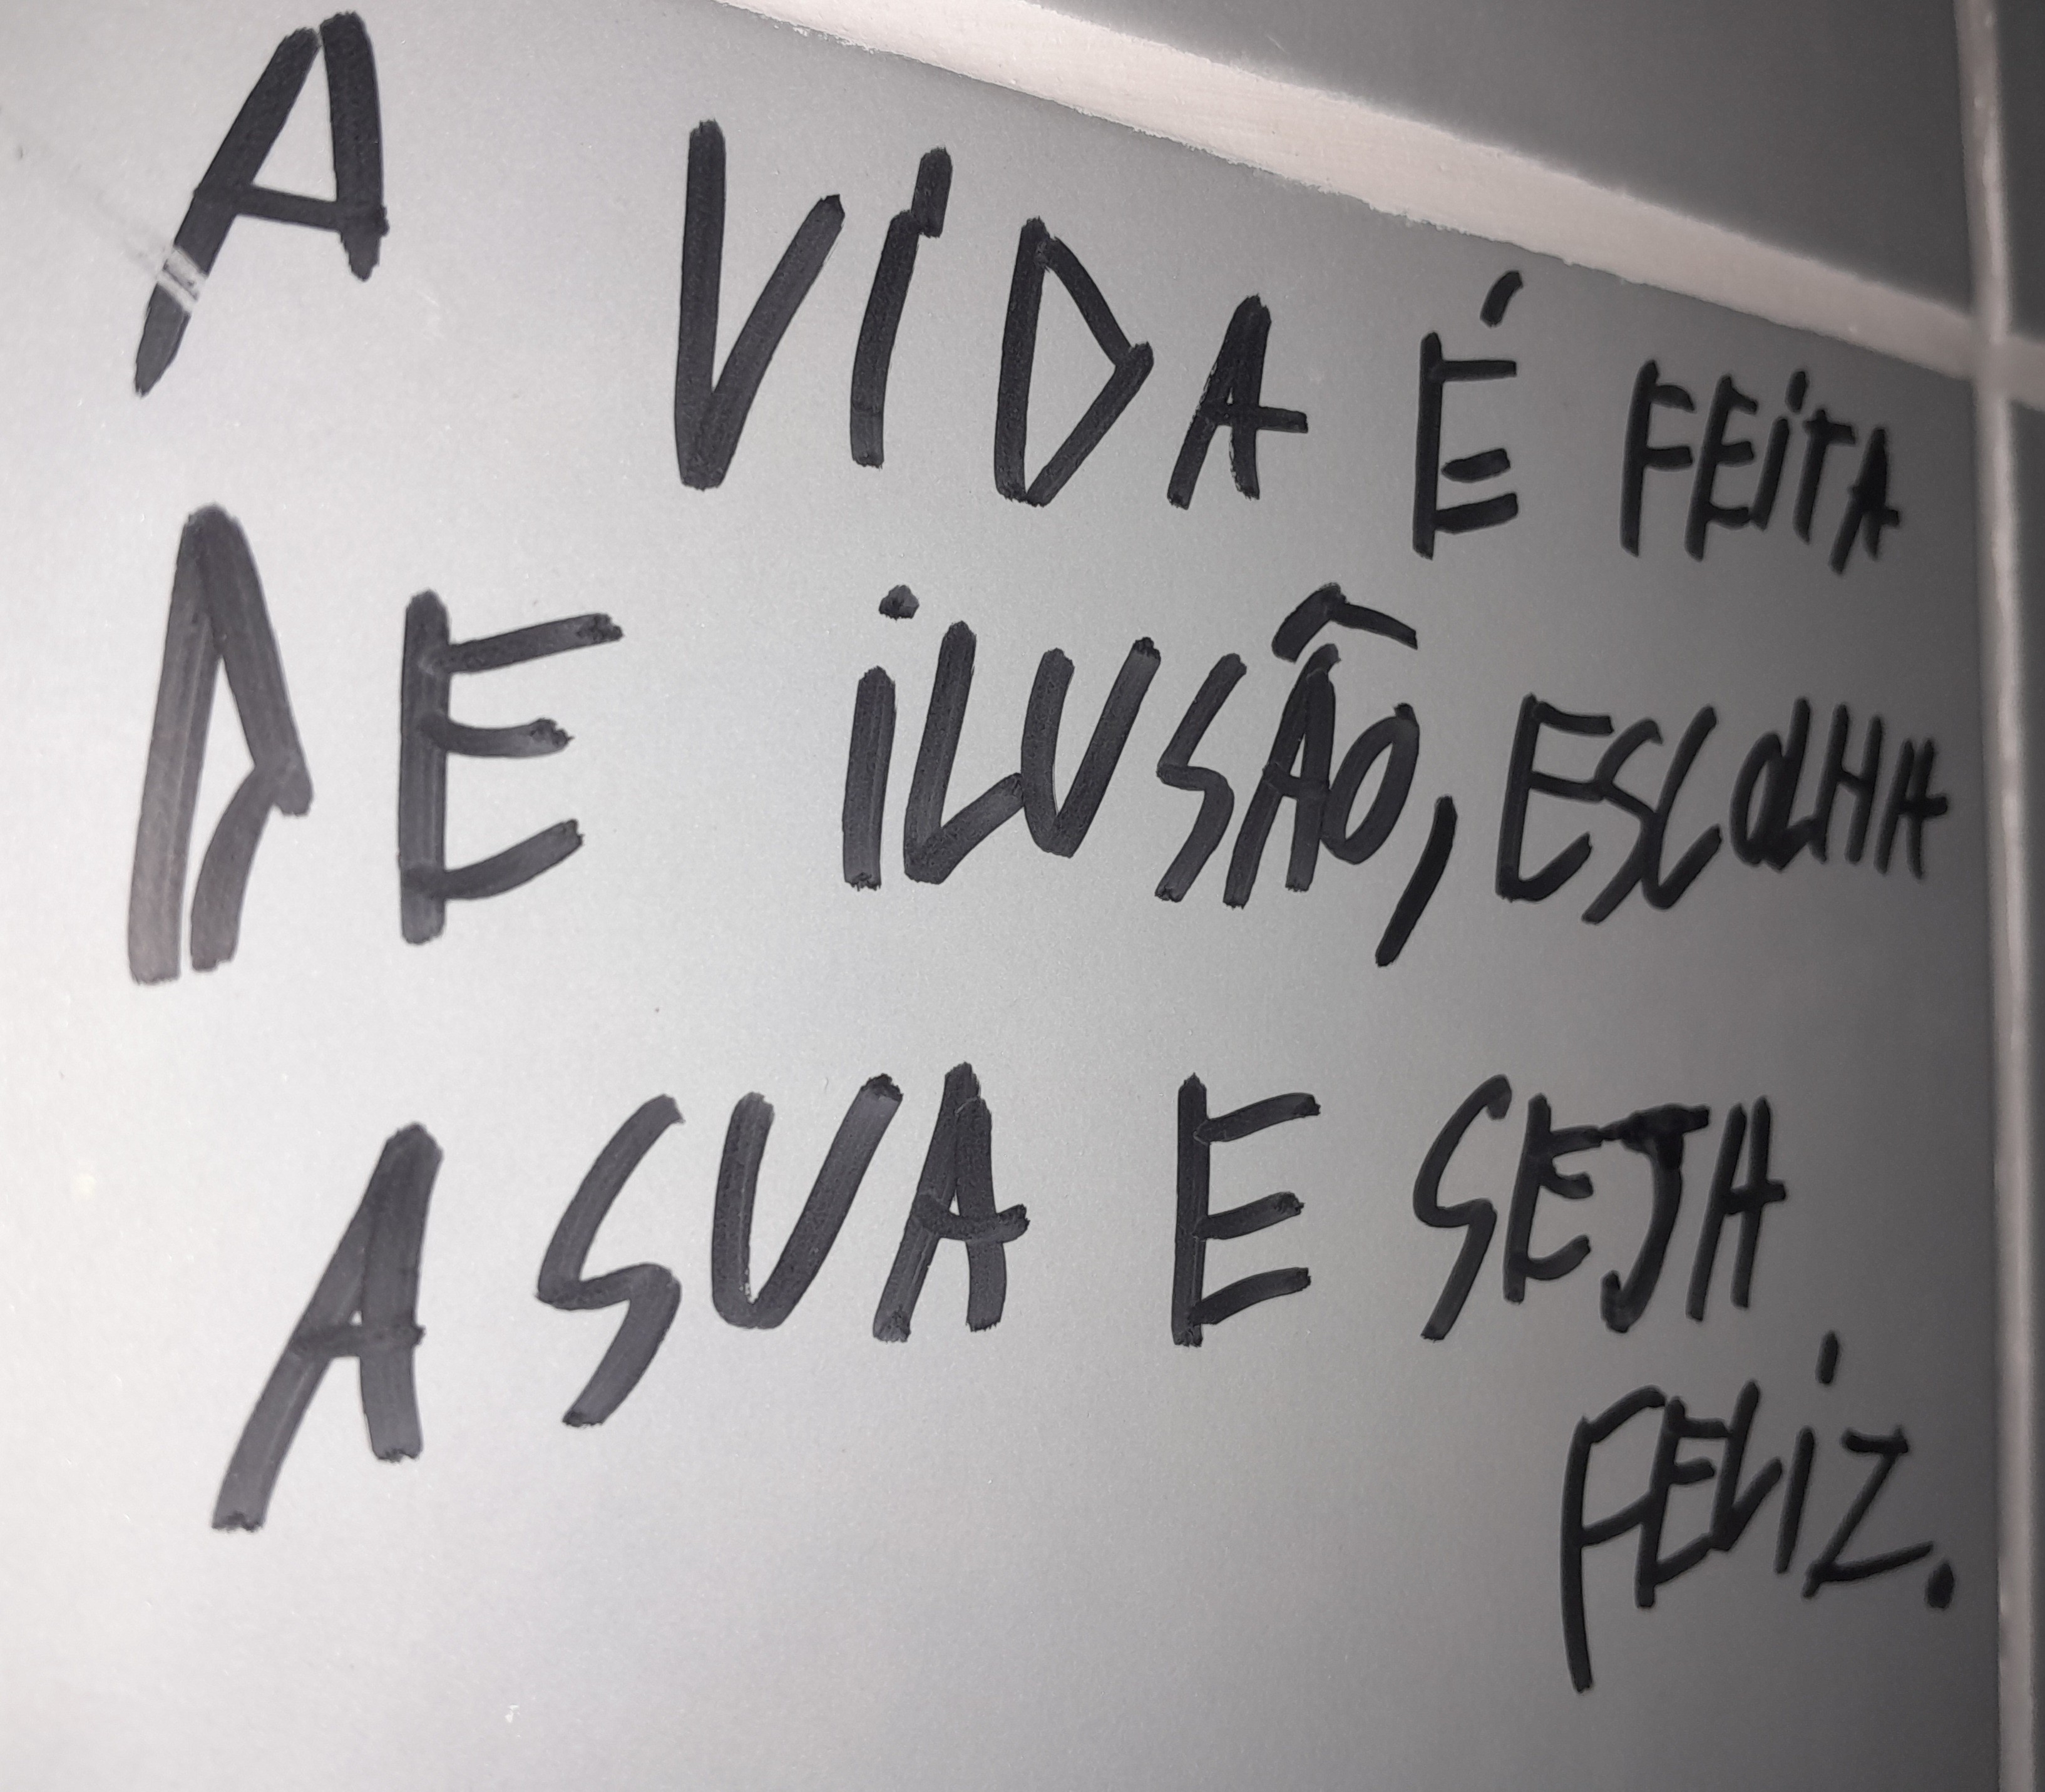 A VIDA É FEITA
DE ILUSÃO, ESCOLHA
A SUA E SEJA
FELIZ.